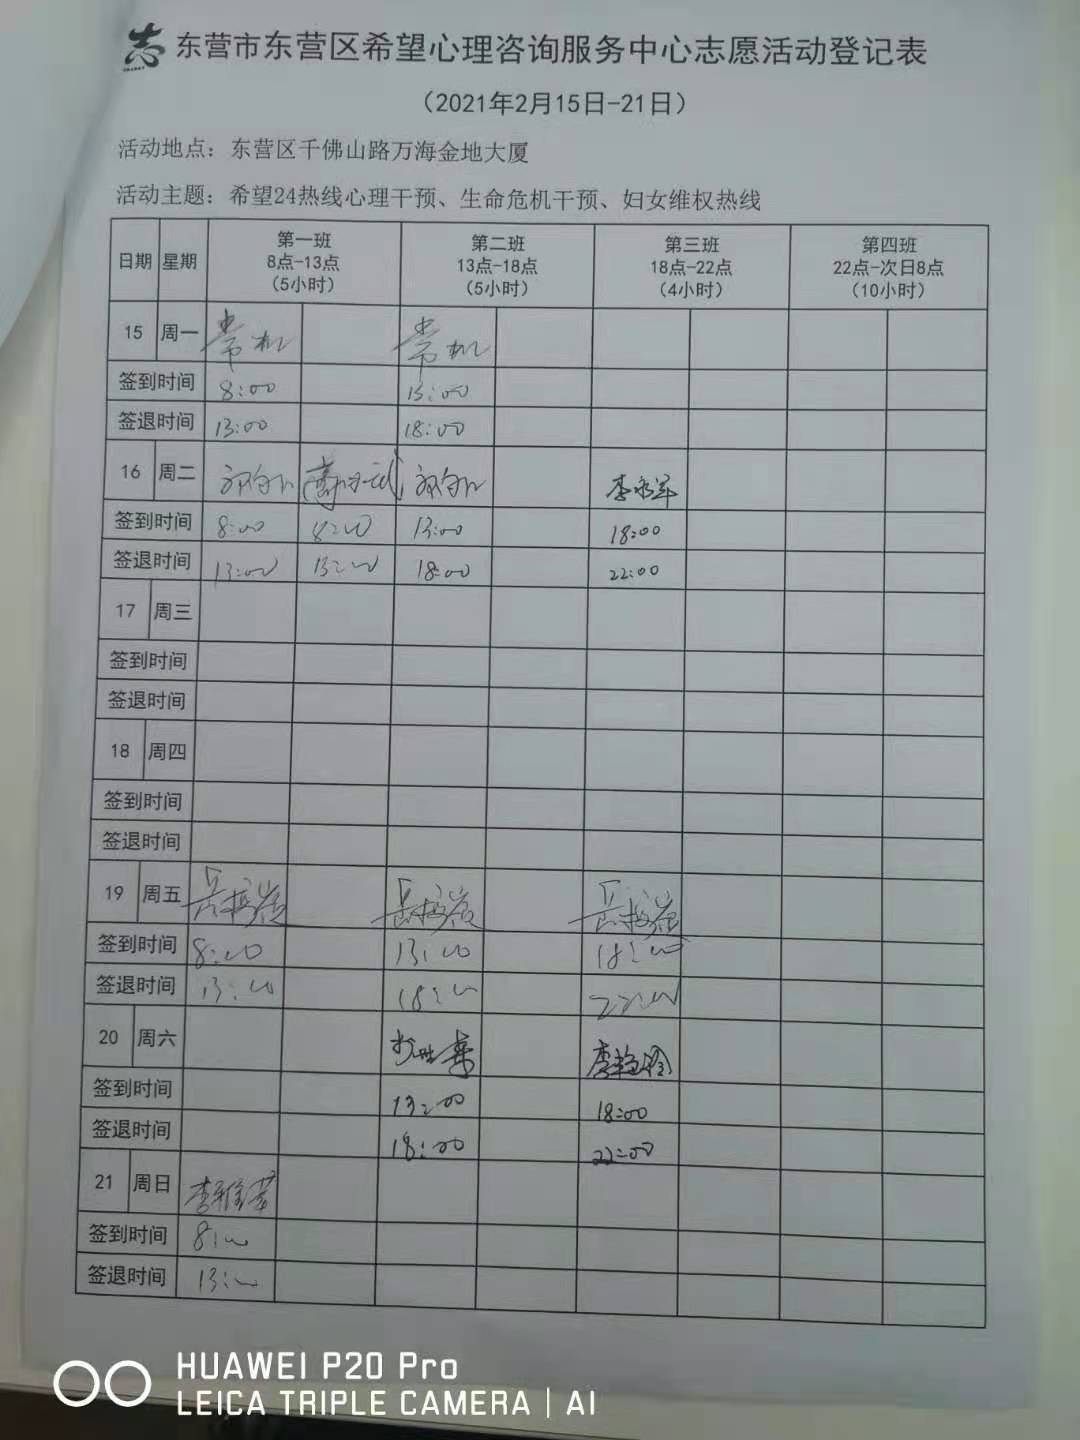 志 东营市东营区希望心理咨询服务中心志愿活动登记表
（2021年2月15日-21日）
活动地点：东营区千佛山路万海金地大厦
活动主题：希望24热线心理干预、生命危机干预、妇女维权热线
日期 星期 第一班 8点-13点 （5小时） 第二班 13点-18点 （5小时） 第三班 18点-22点 （4小时） 第四班 22点-次日8点 （10小时）
15 周一 常 常
签到时间 8:00 13:00
签退时间 13:00 18:00
16 周二 李永军
签到时间 8:00 8:00 13:00 18:00
签退时间 13:00 13:00 18:00 22:00
17 周三
签到时间
签退时间
18 周四
签到时间
签退时间
19 周五 岳 岳 岳
签到时间 8:00 13:00 18:00
签退时间 13:00 18:00 22:00
20 周六 李
签到时间 13:00 18:00
签退时间 18:00 22:00
21 周日 李
签到时间 8:00
签退时间 13:00
HUAWEI P20 Pro
LEICA TRIPLE CAMERA | AI